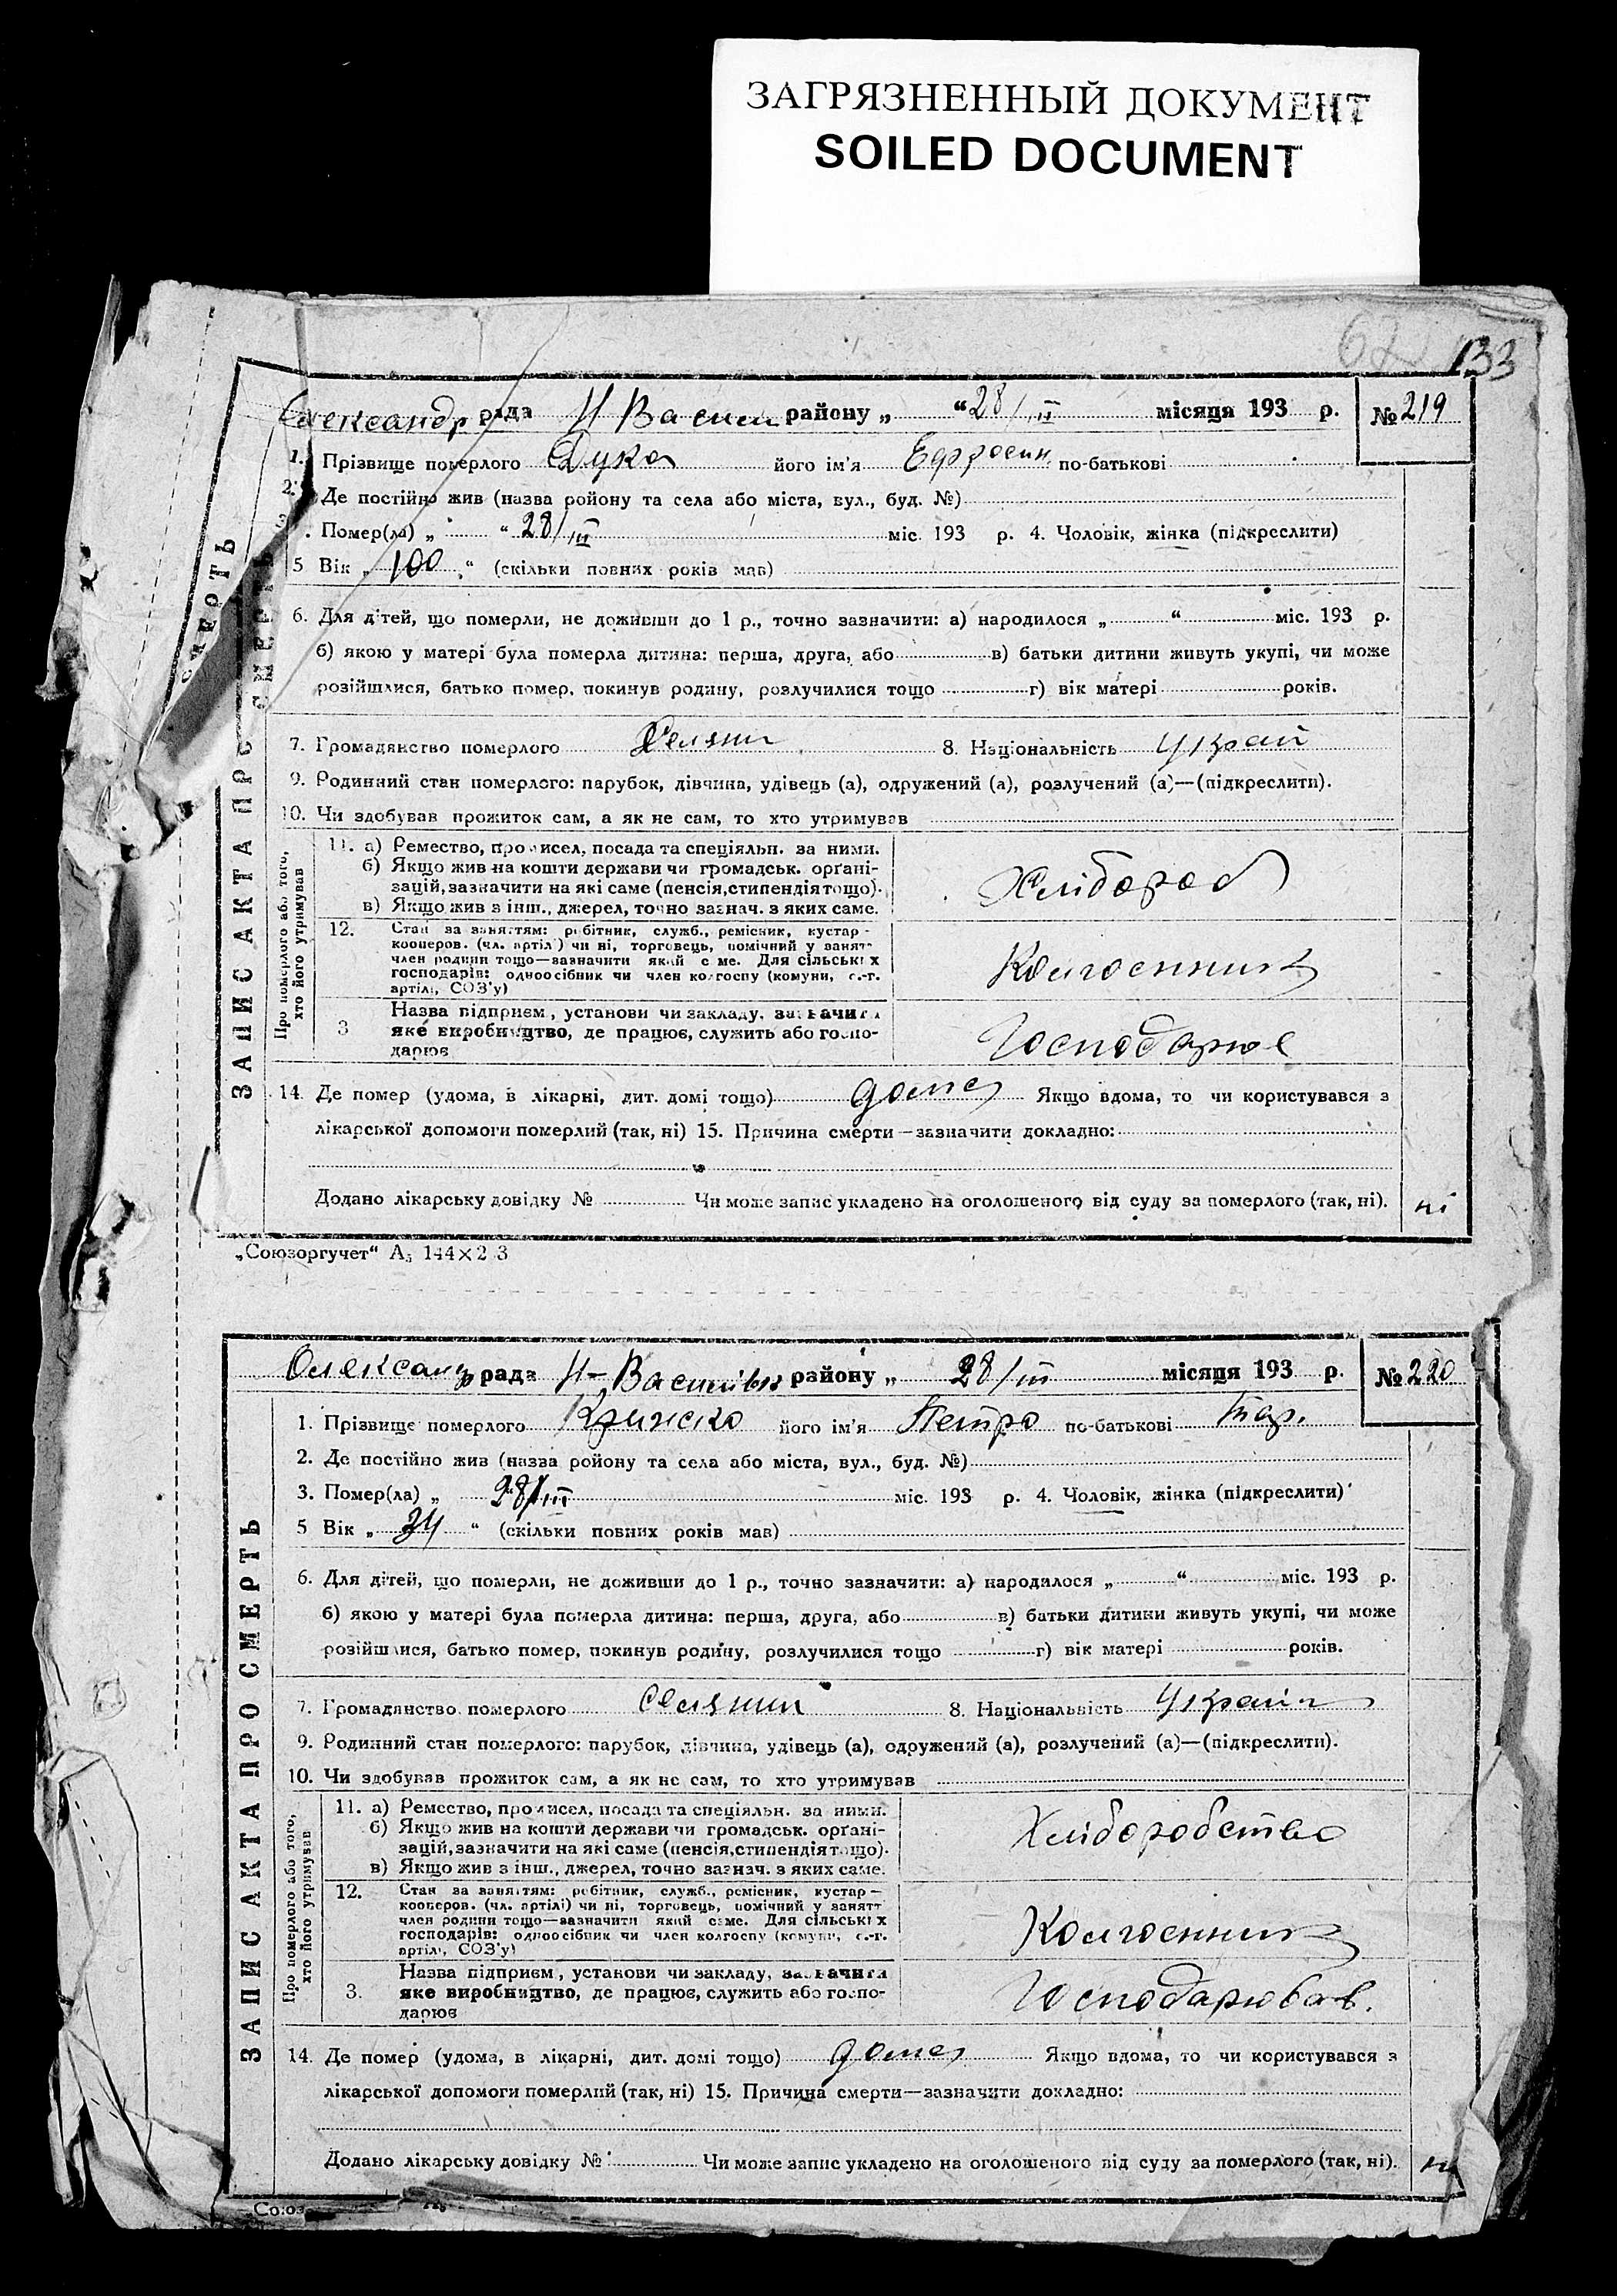 ЗАГРЯЗНЕННЫЙ ДОКУМЕНТ
SOILED DOCUMENT
62 133
Олександр рада Н Васил району „ “ 28/III місяця 193 р. № 219
1. Прізвище померлого Дука його ім'я Ефросин. по-батькові
2. Де постійно жив (назва ройону та села або міста, вул., буд. №)
3. Помер(ла) „ “ 28/III міс. 193 р. 4. Чоловік, жінка (підкреслити)
5 Вік „ 100 “ (скільки повних років мав)
6. Для дітей, що померли, не доживши до 1 р., точно зазначити: а) народилося „ “ міс. 193 р.
б) якою у матері була померла дитина: перша, друга, або в) батьки дитини живуть укупі, чи може
розійшлися, батько помер, покинув родину, розлучилися тощо г) вік матері років.
7. Громадянство померлого Селянин 8. Національність Україн
9. Родинний стан померлого: парубок, дівчина, удівець (а), одружений (а), розлучений (а)—(підкреслити).
10. Чи здобував прожиток сам, а як не сам, то хто утримував
ЗАПИС АКТА ПРО СМЕРТЬ
Про померлого або того,
хто його утримував
11. а) Ремество, промисел, посада та спеціяльн. за ними.
б) Якщо жив на кошти держави чи громадськ. орґані-
зацій, зазначити на які саме (пенсія, стипендія тощо).
в) Якщо жив з інш., джерел, точно зазнач. з яких саме.
Хлібороб
12. Стан за заняттям: робітник, служб., ремісник, кустар-
кооперов. (чл. артілі) чи ні, торговець, помічний у занятт-
член родини тощо—зазначити який саме. Для сільських
господарів: одноосібник чи член колгоспу (комуни, с.-г.
артілі, СОЗ'у)
Колгоспник
3 Назва підприєм, установи чи закладу, зазначити
яке виробництво, де працює, служить або госпо-
дарює
Господарює
14. Де помер (удома, в лікарні, дит. домі тощо) дома Якщо вдома, то чи користувався з
лікарської допомоги померлий (так, ні) 15. Причина смерти—зазначити докладно:
Додано лікарську довідку № Чи може запис укладено на оголошеного від суду за померлого (так, ні). ні
„Союзоргучет“ А5 144×2 3
Олександр рада Н-Васильвк району „ 28/III місяця 193 р. № 220
1. Прізвище померлого його ім'я Петро по-батькові
2. Де постійно жив (назва ройону та села або міста, вул., буд. №)
3. Помер(ла) „ 28/III міс. 193 р. 4. Чоловік, жінка (підкреслити)
5 Вік „ 34 “ (скільки повних років мав)
6. Для дітей, що померли, не доживши до 1 р., точно зазначити: а) народилося „ “ міс. 193 р.
б) якою у матері була померла дитина: перша, друга, або в) батьки дитини живуть укупі, чи може
розійшлися, батько помер, покинув родину, розлучилися тощо г) вік матері років.
7. Громадянство померлого Селянин 8. Національність Україн
9. Родинний стан померлого: парубок, дівчина, удівець (а), одружений (а), розлучений (а)—(підкреслити).
10. Чи здобував прожиток сам, а як не сам, то хто утримував
ЗАПИС АКТА ПРО СМЕРТЬ
Про померлого або того,
хто його утримував
11. а) Ремество, промисел, посада та спеціяльн. за ними.
б) Якщо жив на кошти держави чи громадськ. орґані-
зацій, зазначити на які саме (пенсія, стипендія тощо).
в) Якщо жив з інш., джерел, точно зазнач. з яких саме.
Хліборобство
12. Стан за заняттям: робітник, служб., ремісник, кустар—
кооперов. (чл. артілі) чи ні, торговець, помічний у занятт
член родини тощо—зазначити який саме. Для сільських
господарів: одноосібник чи член колгоспу (комуни, с.-г.
артілі, СОЗ'у)
Колгоспник
3. Назва підприєм, установи чи закладу, зазначити
яке виробництво, де працює, служить або госпо-
дарює
Господарював.
14. Де помер (удома, в лікарні, дит. домі тощо) дома Якщо вдома, то чи користувався з
лікарської допомоги померлий (так, ні) 15. Причина смерти—зазначити докладно:
Додано лікарську довідку № Чи може запис укладено на оголошеного від суду за померлого (так, ні). ні
Союз